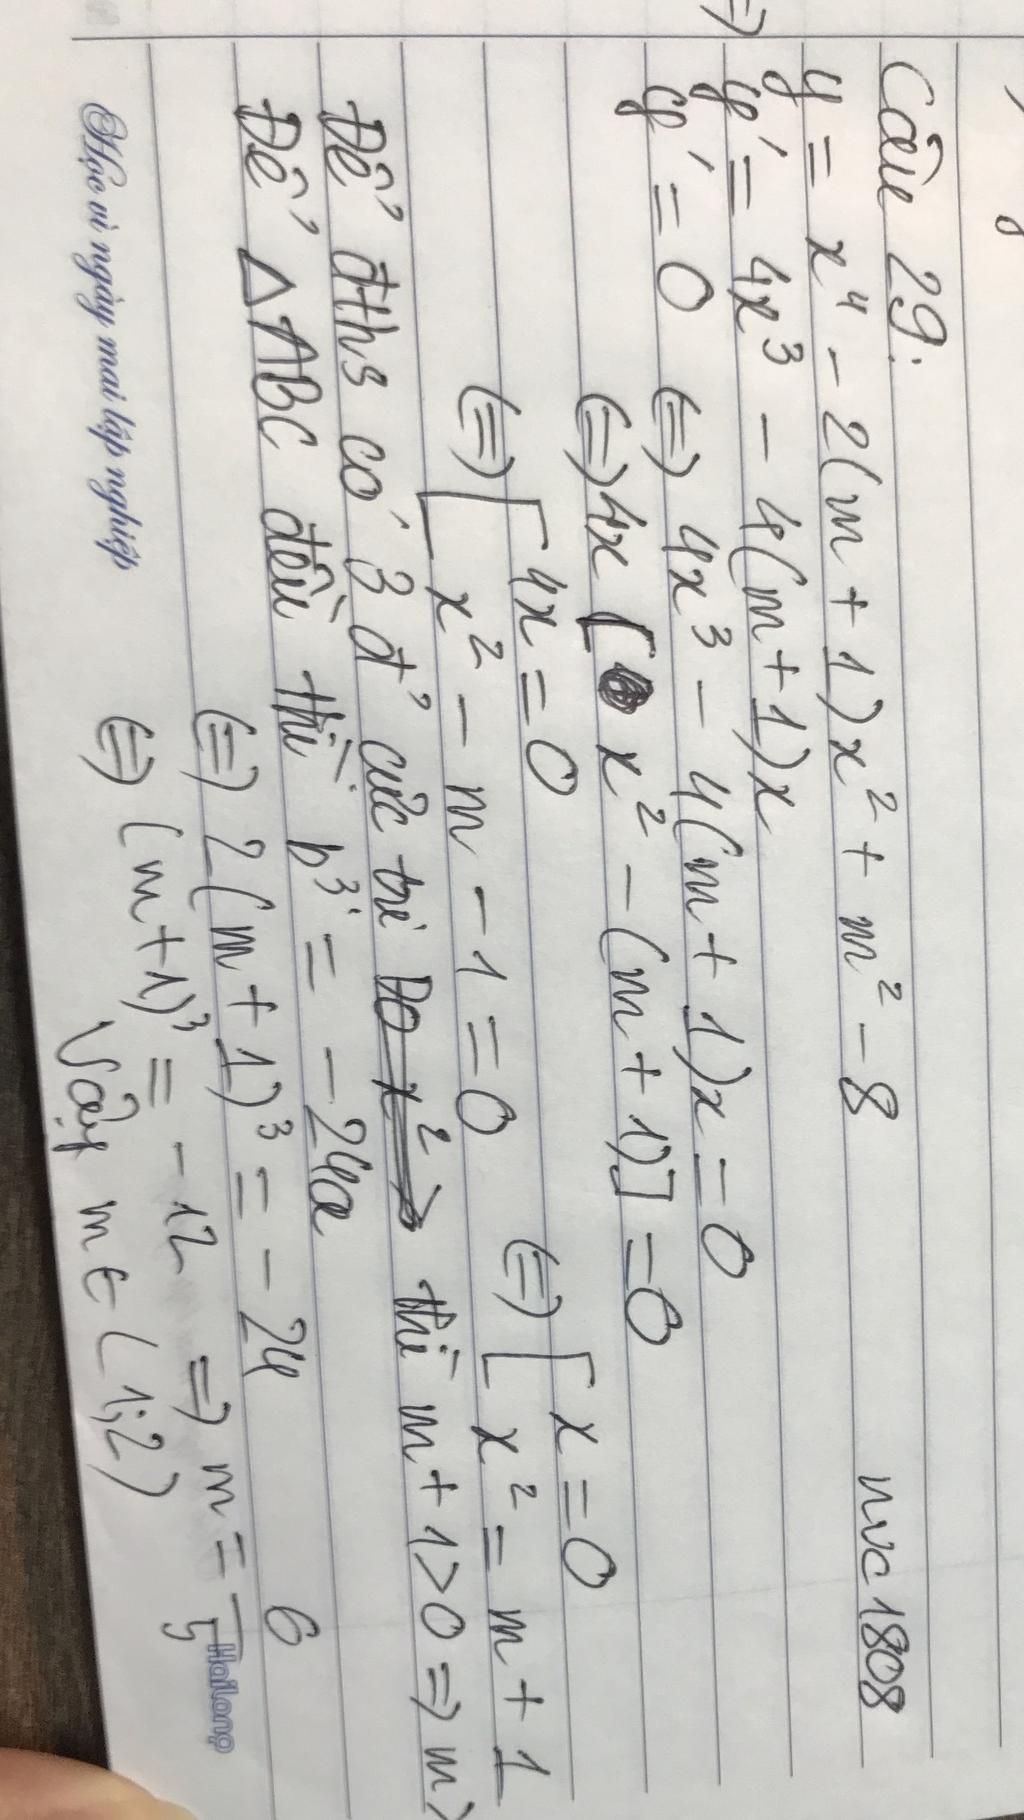 Câu 29:
nvc1808
y = x⁴ - 2(m + 1)x² + m² - 8
y' = 4x³ - 4(m+1)x
y' = 0 (=) 4x³ - 4(m + 1)x = 0
(=) 4x [ x² - (m + 1)] = 0
(=) [ 4x = 0 (=) [ x = 0
x² - m - 1 = 0 x² = m + 1
Để đths có 3 đ' cực trị Do x² > thì m + 1 > 0 => m >
Để ΔABC đều thì b³ = - 24a
(=) 2(m + 1)³ = - 24
(=) (m+1)³ = - 12 => m =
Vậy m ∈ (1;2)
@Học vì ngày mai lập nghiệp
Hailong